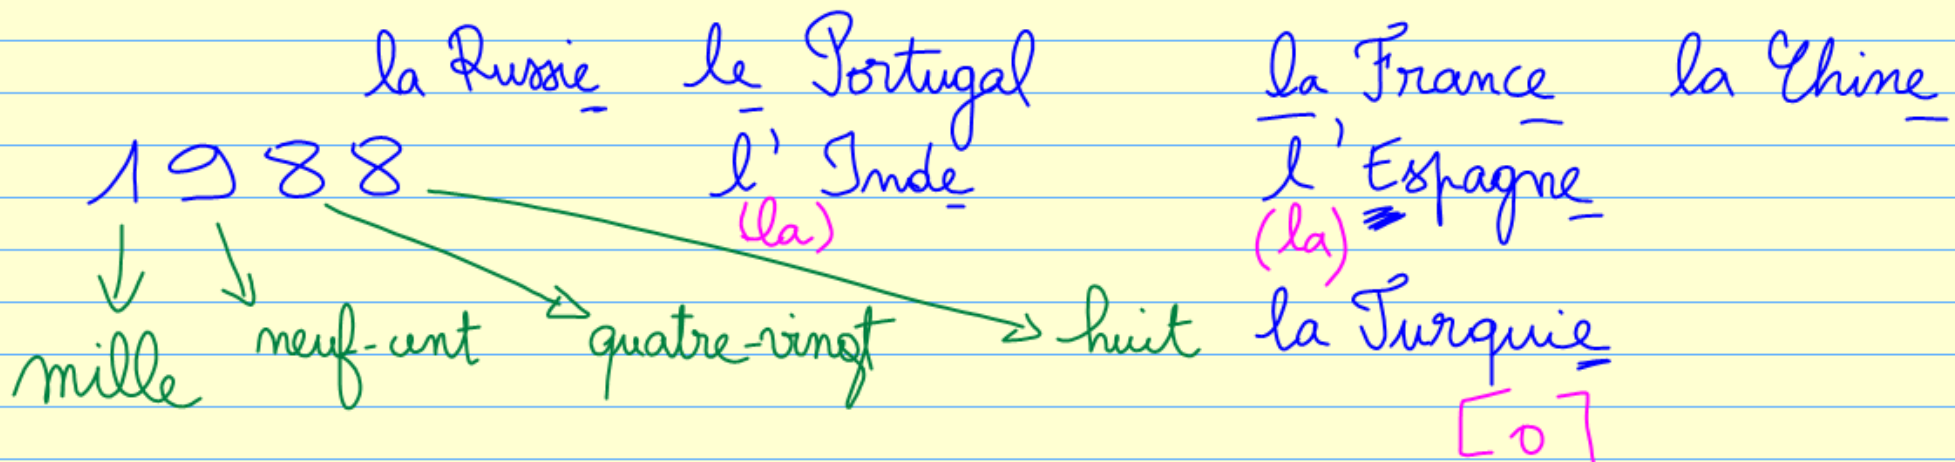 la Russie le Portugal la France la Chine
1988 l'Inde l'Espagne
(la) (la)
mille neuf-cent quatre-vingt huit la Turquie
[o]